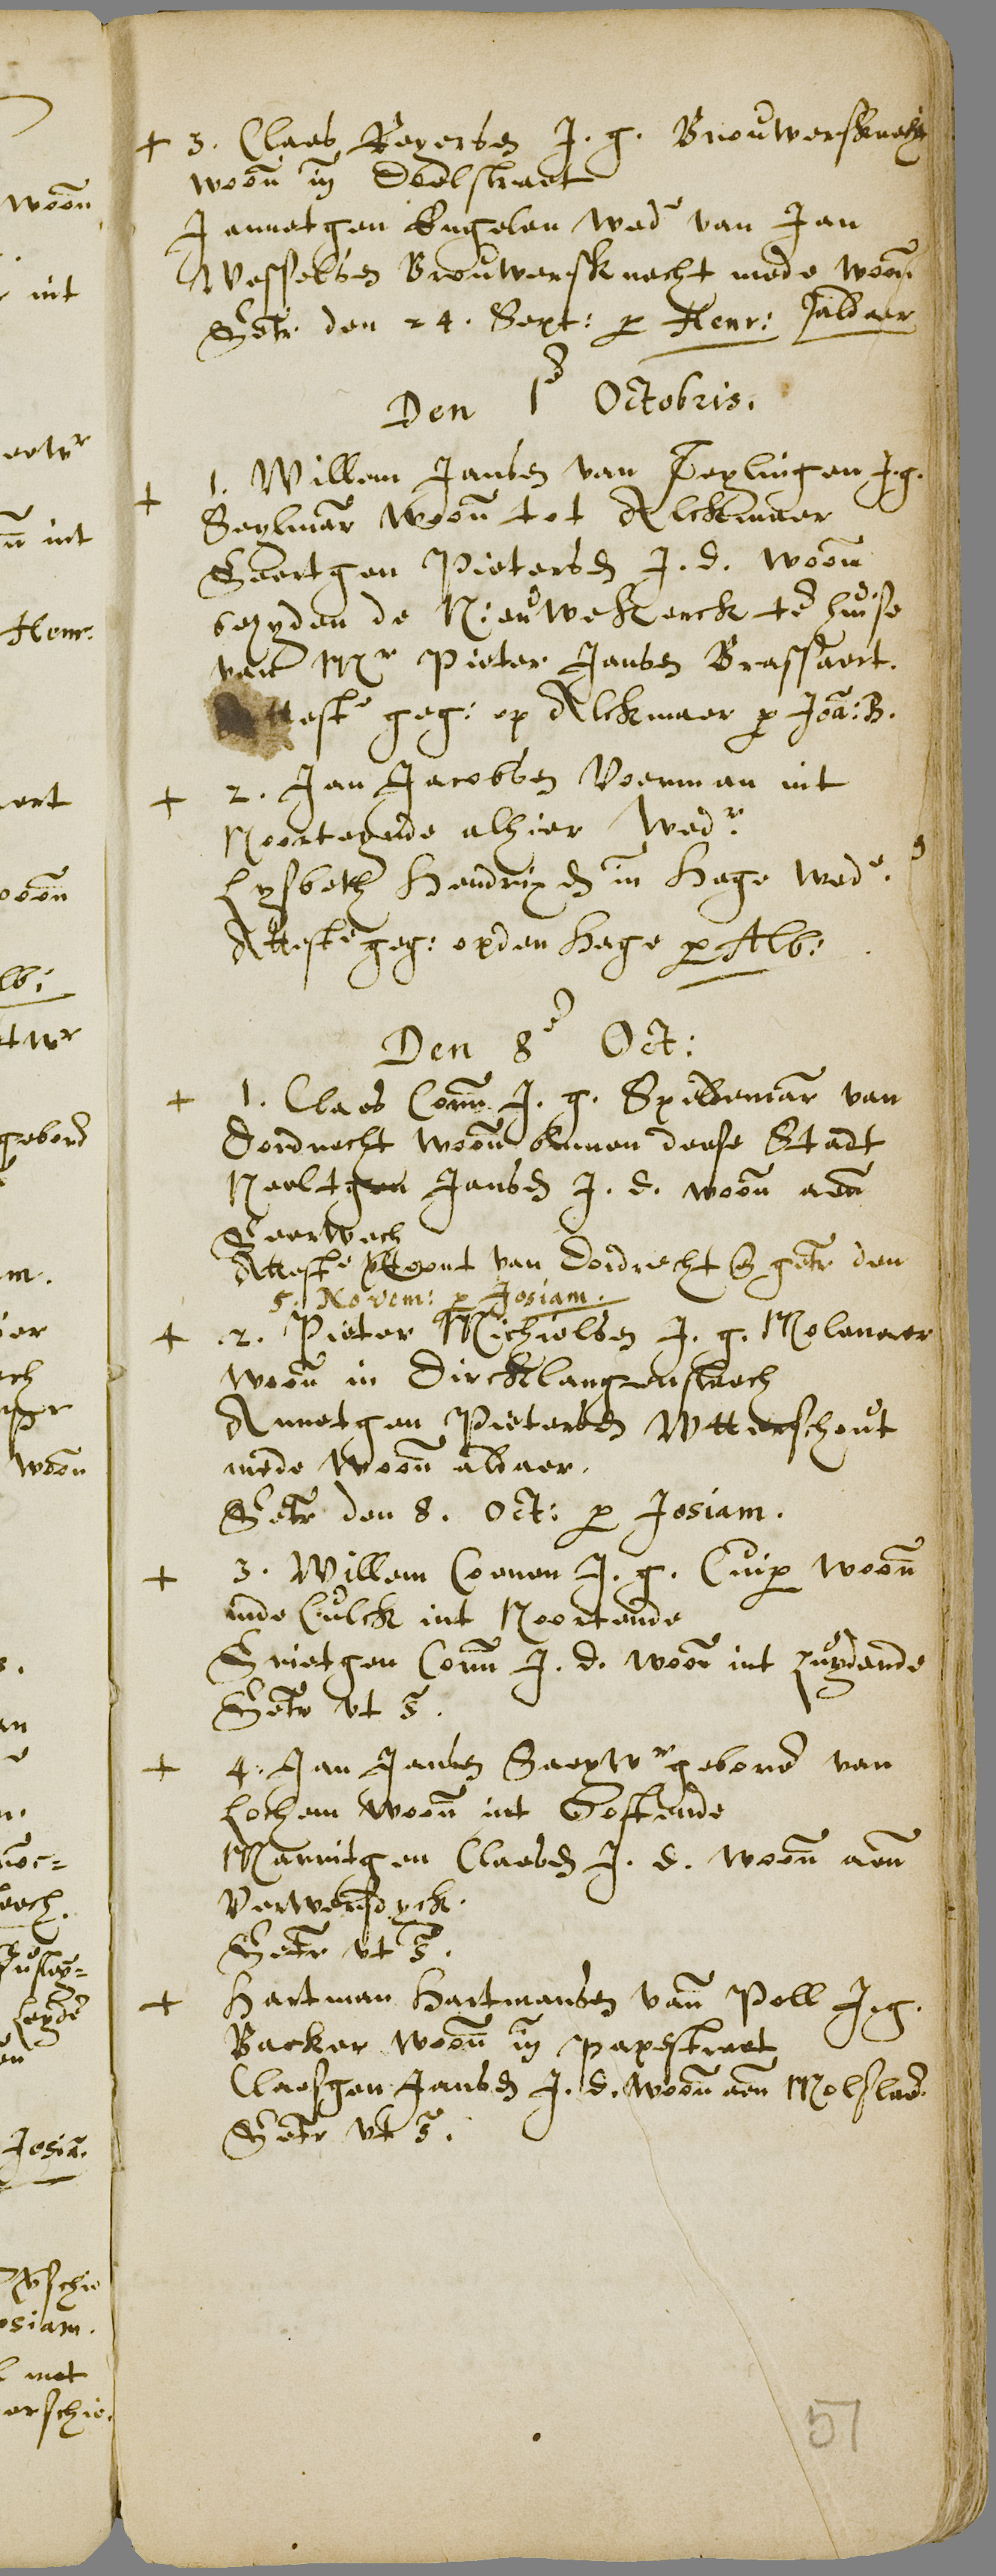 + 3. Claes Reyersz J. g. Brouwersknecht
woon in Doelstraet
Jannetgen Engelen wed van Jan
Wesselsz Brouwersknecht mede woon
Getr den 24. Sept: p Henr: Jaldaer
Den 1e Octobris.
+ 1. Willem Jansz van Teylingen J.g.
Seylmar woon tot Alckmaer
Geertgen Pietersd J. d. woon
bezyden de Nieuwe Kerck te huise
van Mr Pieter Jansz Brassaert.
Atteste geg: op Alckmaer p Joa: B.
+ 2. Jan Jacobsz Voerman int
Noorteynde alhier Wedr.
Lysbeth Hendrixd in Hage wede.
Atteste geg: op den Hage p Alb:
Den 8e Oct:
+ 1. Claes Corn J. g. Spilleman van
Dordrecht woon binnen deese Stadt
Neeltgen Jansd J. d. woon aen
Geerwech
Atteste vertoont van Dordrecht & getr den
5. Novem: p Josiam.
+ 2. Pieter Michielsz J. g. Molenaer
woon in Dircklangensteech
Annetgen Pietersd Wtterschout
mede woon aldaer.
Getr den 8. Oct: p Josiam.
+ 3. Willem Coenen J. g. Cuip woon
inde Culck int Noortende
Grietgen Corn J. d. woon int zuydende
Getr vt s.
+ 4. Jan Jansz Saeywr gebore van
Lochem woon int Oostende
Marritgen Claesd J. d. woon aen
Verwersdyck.
Getr vt s.
+ Hartman Hartmansz van Poll J.g.
Backer woon in papestraet
Claesgen Jansd J. d. woon aen Molslae.
Getr vt s.
57